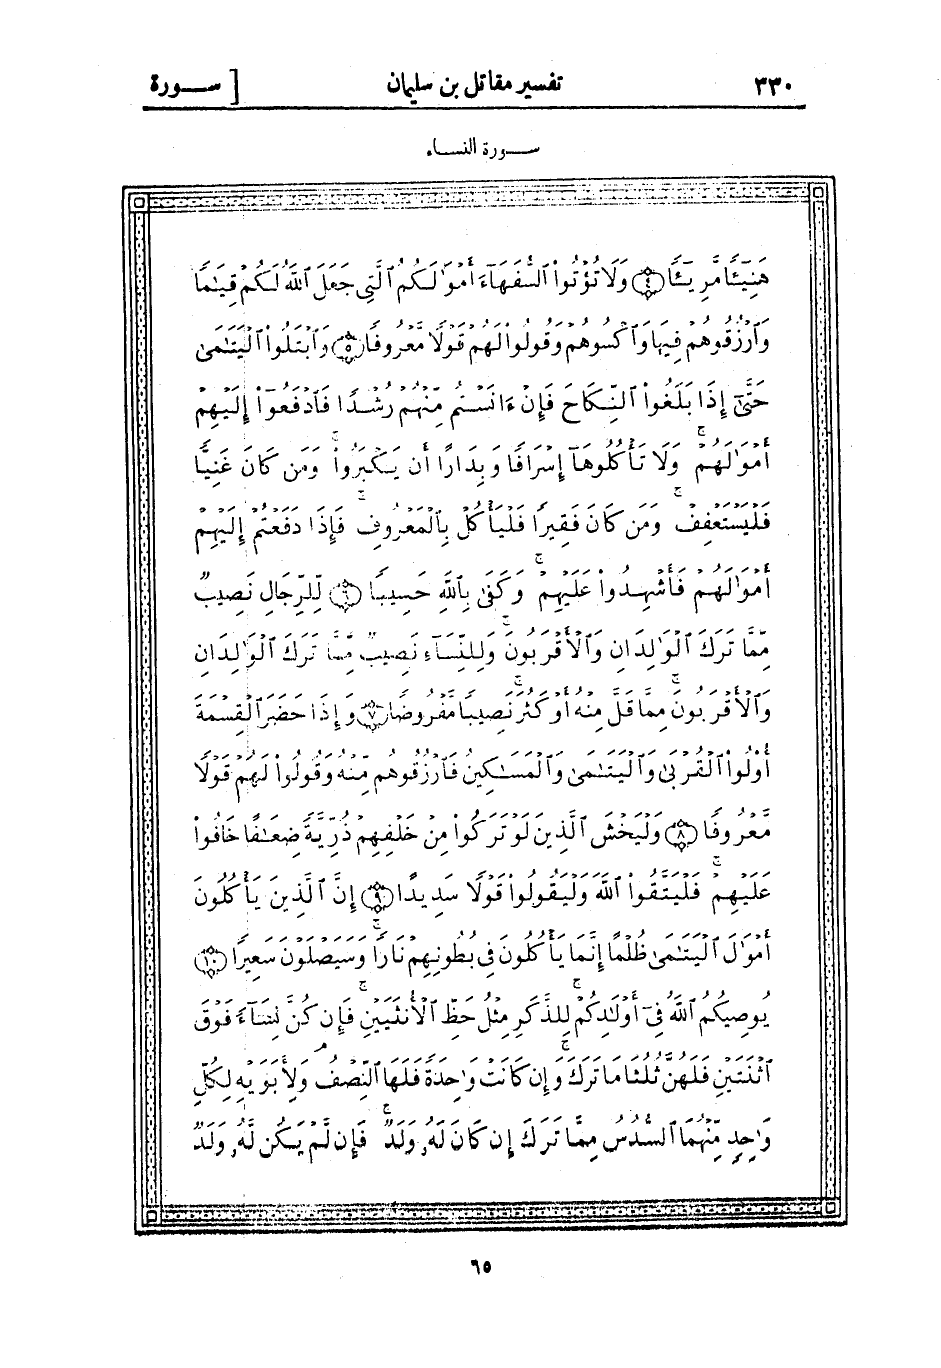 ٣٣٠ تفسير مقاتل بن سليمان [ ســـورة
ســـورة النســاء
هَنِيٓـًٔا مَّرِيٓـًٔا ﴿٤﴾ وَلَا تُؤْتُوا۟ ٱلسُّفَهَآءَ أَمْوَٰلَكُمُ ٱلَّتِى جَعَلَ ٱللَّهُ لَكُمْ قِيَـٰمًا
وَٱرْزُقُوهُمْ فِيهَا وَٱكْسُوهُمْ وَقُولُوا۟ لَهُمْ قَوْلًا مَّعْرُوفًا ﴿٥﴾ وَٱبْتَلُوا۟ ٱلْيَتَـٰمَىٰ
حَتَّىٰٓ إِذَا بَلَغُوا۟ ٱلنِّكَاحَ فَإِنْ ءَانَسْتُم مِّنْهُمْ رُشْدًا فَٱدْفَعُوٓا۟ إِلَيْهِمْ
أَمْوَٰلَهُمْ ۖ وَلَا تَأْكُلُوهَآ إِسْرَافًا وَبِدَارًا أَن يَكْبَرُوا۟ ۚ وَمَن كَانَ غَنِيًّا
فَلْيَسْتَعْفِفْ ۖ وَمَن كَانَ فَقِيرًا فَلْيَأْكُلْ بِٱلْمَعْرُوفِ ۚ فَإِذَا دَفَعْتُمْ إِلَيْهِمْ
أَمْوَٰلَهُمْ فَأَشْهِدُوا۟ عَلَيْهِمْ ۚ وَكَفَىٰ بِٱللَّهِ حَسِيبًا ﴿٦﴾ لِّلرِّجَالِ نَصِيبٌ
مِّمَّا تَرَكَ ٱلْوَٰلِدَانِ وَٱلْأَقْرَبُونَ ۚ وَلِلنِّسَآءِ نَصِيبٌ مِّمَّا تَرَكَ ٱلْوَٰلِدَانِ
وَٱلْأَقْرَبُونَ ۚ مِمَّا قَلَّ مِنْهُ أَوْ كَثُرَ ۚ نَصِيبًا مَّفْرُوضًا ﴿٧﴾ وَإِذَا حَضَرَ ٱلْقِسْمَةَ
أُو۟لُوا۟ ٱلْقُرْبَىٰ وَٱلْيَتَـٰمَىٰ وَٱلْمَسَـٰكِينُ فَٱرْزُقُوهُم مِّنْهُ وَقُولُوا۟ لَهُمْ قَوْلًا
مَّعْرُوفًا ﴿٨﴾ وَلْيَخْشَ ٱلَّذِينَ لَوْ تَرَكُوا۟ مِنْ خَلْفِهِمْ ذُرِّيَّةً ضِعَـٰفًا خَافُوا۟
عَلَيْهِمْ ۚ فَلْيَتَّقُوا۟ ٱللَّهَ وَلْيَقُولُوا۟ قَوْلًا سَدِيدًا ﴿٩﴾ إِنَّ ٱلَّذِينَ يَأْكُلُونَ
أَمْوَٰلَ ٱلْيَتَـٰمَىٰ ظُلْمًا إِنَّمَا يَأْكُلُونَ فِى بُطُونِهِمْ نَارًا ۚ وَسَيَصْلَوْنَ سَعِيرًا ﴿١٠﴾
يُوصِيكُمُ ٱللَّهُ فِىٓ أَوْلَـٰدِكُمْ ۚ لِلذَّكَرِ مِثْلُ حَظِّ ٱلْأُنثَيَيْنِ ۚ فَإِن كُنَّ نِسَآءً فَوْقَ
ٱثْنَتَيْنِ فَلَهُنَّ ثُلُثَا مَا تَرَكَ ۚ وَإِن كَانَتْ وَٰحِدَةً فَلَهَا ٱلنِّصْفُ ۚ وَلِأَبَوَيْهِ لِكُلِّ
وَٰحِدٍ مِّنْهُمَا ٱلسُّدُسُ مِمَّا تَرَكَ إِن كَانَ لَهُۥ وَلَدٌ ۚ فَإِن لَّمْ يَكُن لَّهُۥ وَلَدٌ
٦٥